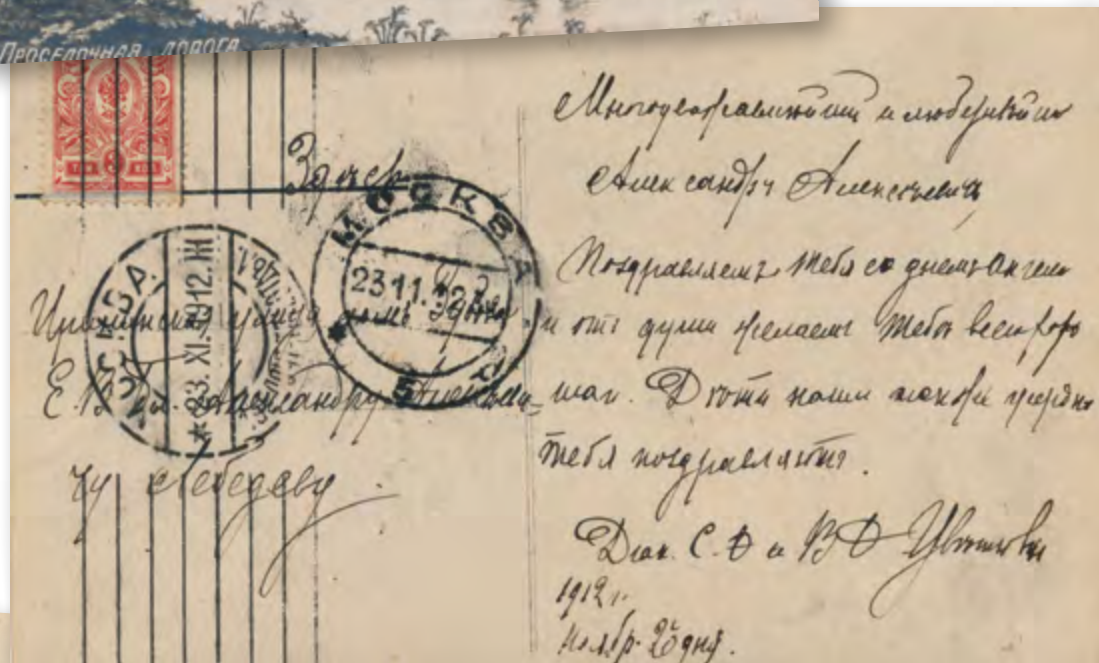 ПРОСЕЛОЧНАЯ ДОРОГА
Здесь
МОСКВА
23.11.12
5
МОСКВА.
23. XI. 1912.
улица
Е. В. Бл. Александру Алексѣеви-
чу Лебедеву.
Многоуважаемый и любезный
Александръ Алексѣевичъ
Поздравляемъ тебя со днемъ Ангела
и отъ души желаемъ тебѣ всего хоро-
шаго. Дѣти наши также
тебя поздравляютъ.
Діак. С. Ѳ и В Ѳ Цвѣтковы
1912 г.
Ноябр. дня.